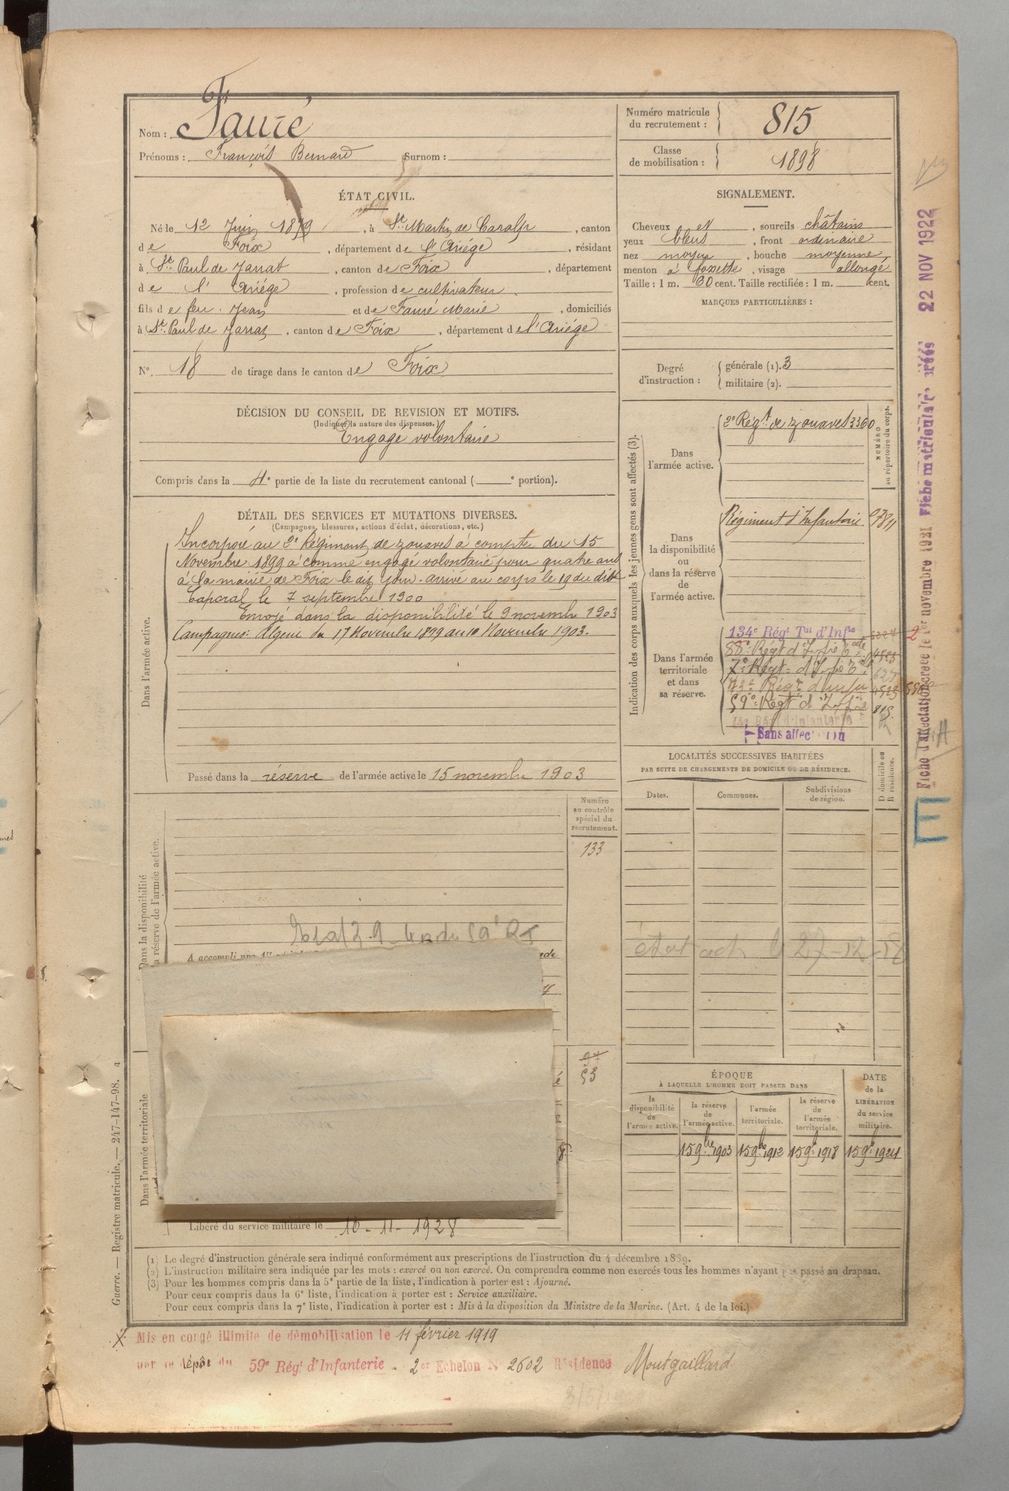 Nom : Fauré
Prénoms : François Bernard Surnom :
Numéro matricule du recrutement : 815
Classe de mobilisation : 1898
ÉTAT CIVIL.
Né le 12 Juin 1879, à St Martin de Caralp, canton
de Foix, département de l'Ariége, résidant
à St Paul de Jarrat, canton de Foix, département
de l'Ariége, profession de cultivateur
fils de feu Jean et de Fauré Marie, domiciliés
à St Paul de Jarrat, canton de Foix, département de l'Ariége
N° 18 de tirage dans le canton de Foix
SIGNALEMENT.
Cheveux et, sourcils châtains
yeux bleus, front ordinaire
nez moyen, bouche moyenne
menton à fossette, visage allongé
Taille : 1 m. cent. Taille rectifiée : 1 m. cent.
MARQUES PARTICULIÈRES :
Degré d'instruction : générale (1). 3
militaire (2).
DÉCISION DU CONSEIL DE REVISION ET MOTIFS.
(Indiquer la nature des dispenses.)
Engagé volontaire
Compris dans la 4e partie de la liste du recrutement cantonal ( e portion).
DÉTAIL DES SERVICES ET MUTATIONS DIVERSES.
(Campagnes, blessures, actions d'éclat, décorations, etc.)
Dans l'armée active.
Incorporé au 2e Régiment de zouaves à compter du 15
Novembre 1899 comme engagé volontaire pour quatre ans
à la mairie de Foix le dit jour. arrivé au corps le 19 du dit
Caporal le 7 septembre 1900
Envoyé dans la disponibilité le 9 novembre 1903
Campagnes: Algérie du 17 Novembre 1899 au 10 Novembre 1903.
Passé dans la réserve de l'armée active le 15 novembre 1903
Indication des corps auxquels les jeunes gens sont affectés (3).
NUMÉRO au répertoire du corps.
Dans l'armée active.
2e Régt de zouaves 3360
Dans la disponibilité ou dans la réserve de l'armée active.
Régiment d'Infanterie
Dans l'armée territoriale et dans sa réserve.
134e Régt Tal d'Infie
59e Régt d'Infie 815
Sans affectation
LOCALITÉS SUCCESSIVES HABITÉES
PAR SUITE DE CHANGEMENTS DE DOMICILE OU DE RÉSIDENCE.
Dates.
Communes.
Subdivisions de région.
D domicile ou R résidence.
Numéro au contrôle spécial du recrutement.
133
Dans la disponibilité
la réserve de l'armée active.
27-12-18
53
Dans l'armée territoriale
ÉPOQUE
À LAQUELLE L'HOMME DOIT PASSER DANS
la disponibilité de l'armée active.
la réserve de l'armée active.
l'armée territoriale.
la réserve de l'armée territoriale.
DATE de la LIBÉRATION du service militaire.
15 9bre 1903
15 9bre 1913
15 9bre 1918
15 9bre 1924
Libéré du service militaire le 10-11-1928
(1) Le degré d'instruction générale sera indiqué conformément aux prescriptions de l'instruction du 4 décembre 1889.
(2) L'instruction militaire sera indiquée par les mots : exercé ou non exercé. On comprendra comme non exercés tous les hommes n'ayant pas passé au drapeau.
(3) Pour les hommes compris dans la 5e partie de la liste, l'indication à porter est : Ajourné.
Pour ceux compris dans la 6e liste, l'indication à porter est : Service auxiliaire.
Pour ceux compris dans la 7e liste, l'indication à porter est : Mis à la disposition du Ministre de la Marine. (Art. 4 de la loi.)
Mis en congé illimité de démobilisation le 11 février 1919
par le dépôt du 59e Régt d'Infanterie. 2e Echelon N° 2602 Résidence Montgaillard
Guerre. — Registre matricule. — 247-147-98.
22 NOV 1922
E